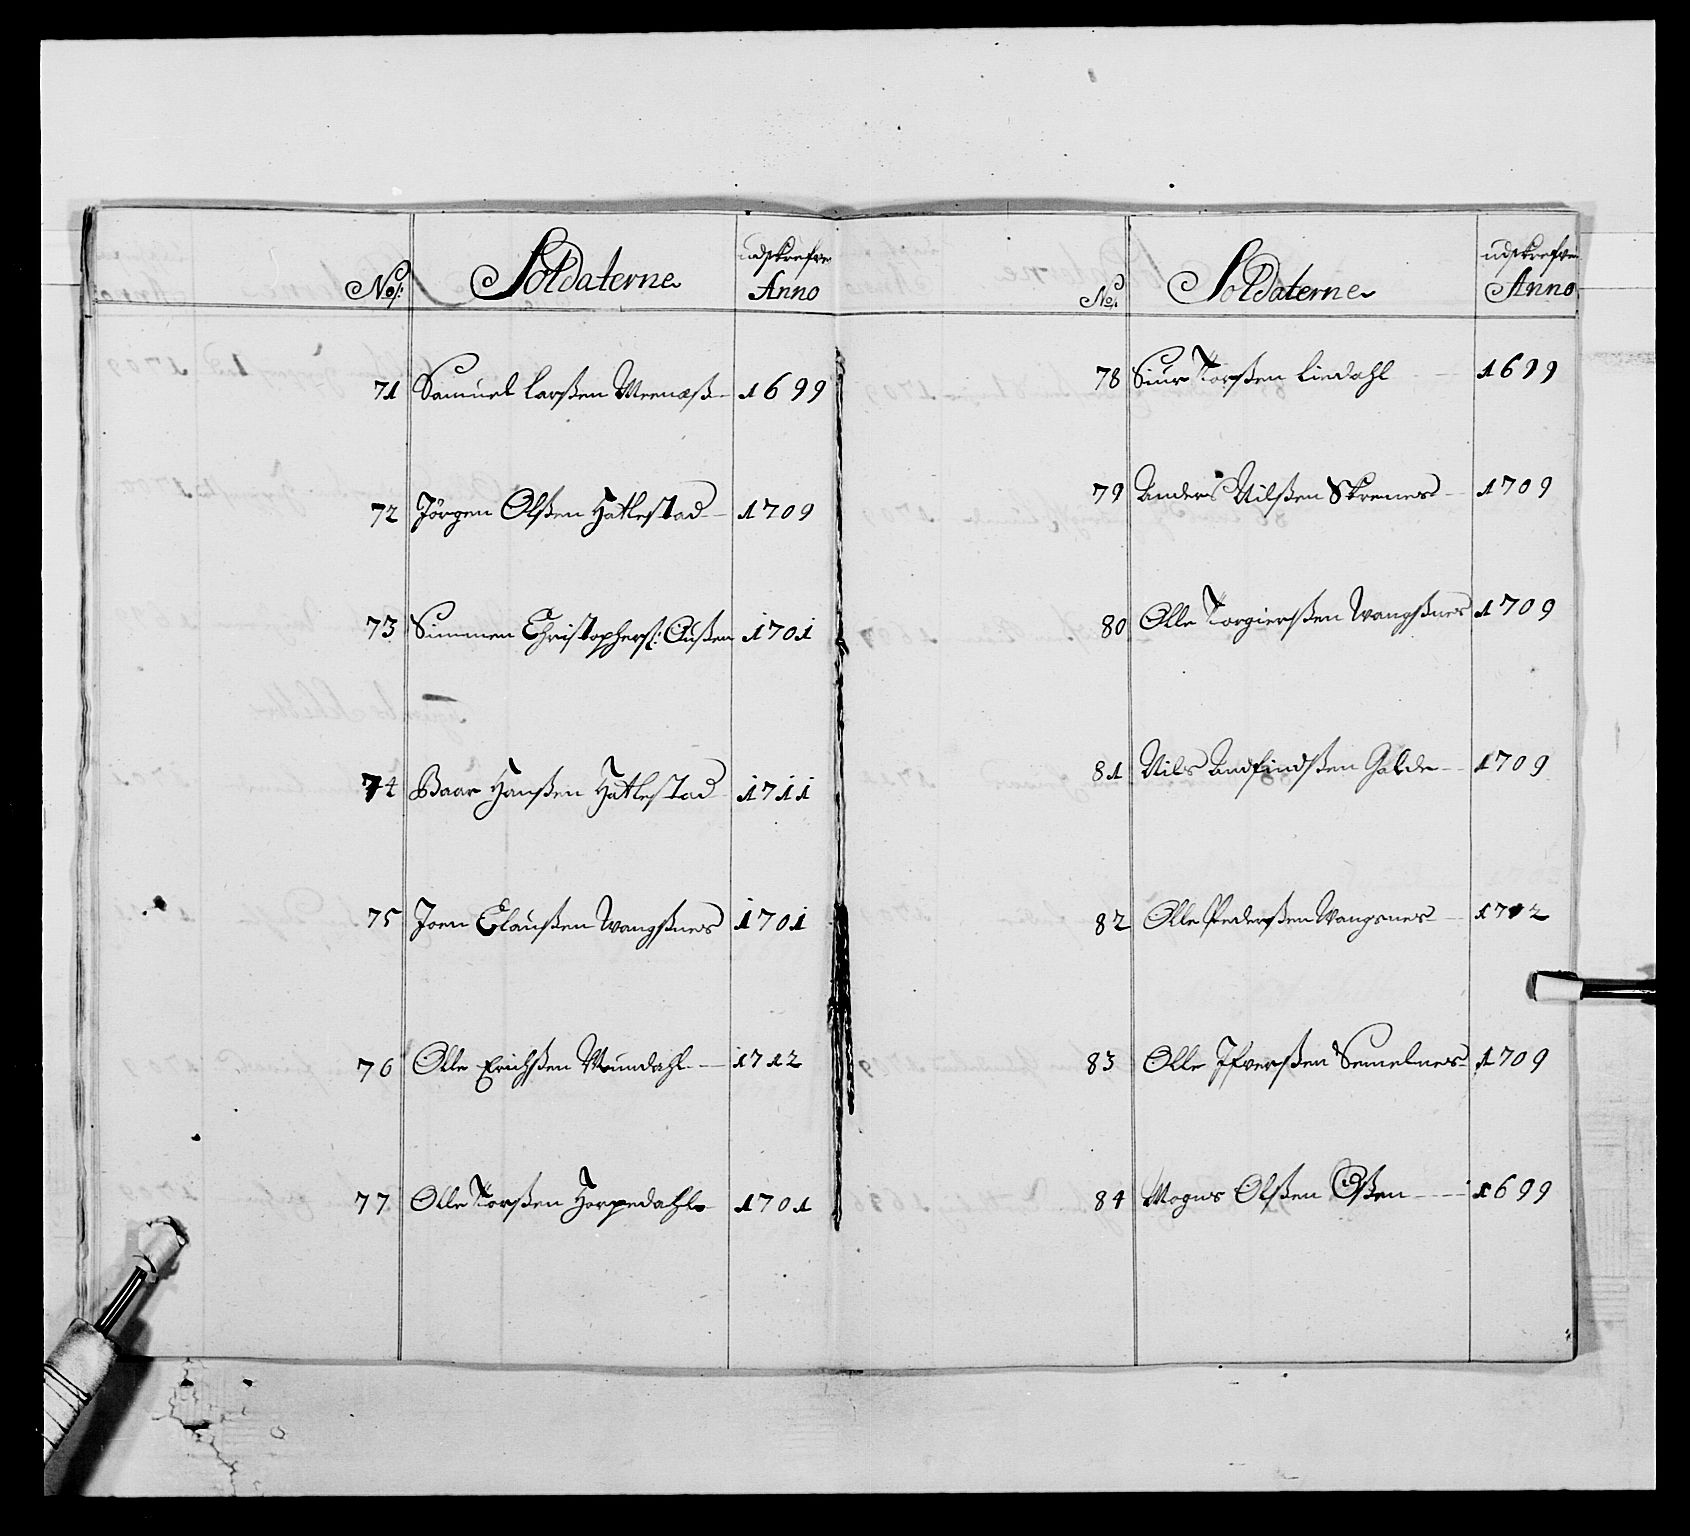 No: Soldaterne udskrefvne Anno
71 Samuel Larßen Meenæß 1699
72 Jörgen Olßen Hatlestad 1709
73 Simmen Christophers: Außen 1701
74 Baar Hanßen Hatlestad 1711
75 Joen Claußen Wangßnes 1701
76 Olle Erichßen Mundahl 1712
77 Olle Torßen Horpedahl 1701
No: Soldaterne udskrefvne Anno
78 Siur Torßen Liedahl 1699
79 Anders Nilßen Skrenes 1709
80 Olle Torgierßen Wangßnes 1709
81 Nils Andfindßen Galde 1709
82 Olle Pederßen Wangsnes 1712
83 Olle Ifverßen Semelnes 1709
84 Mogns Olßen Eßen 1699